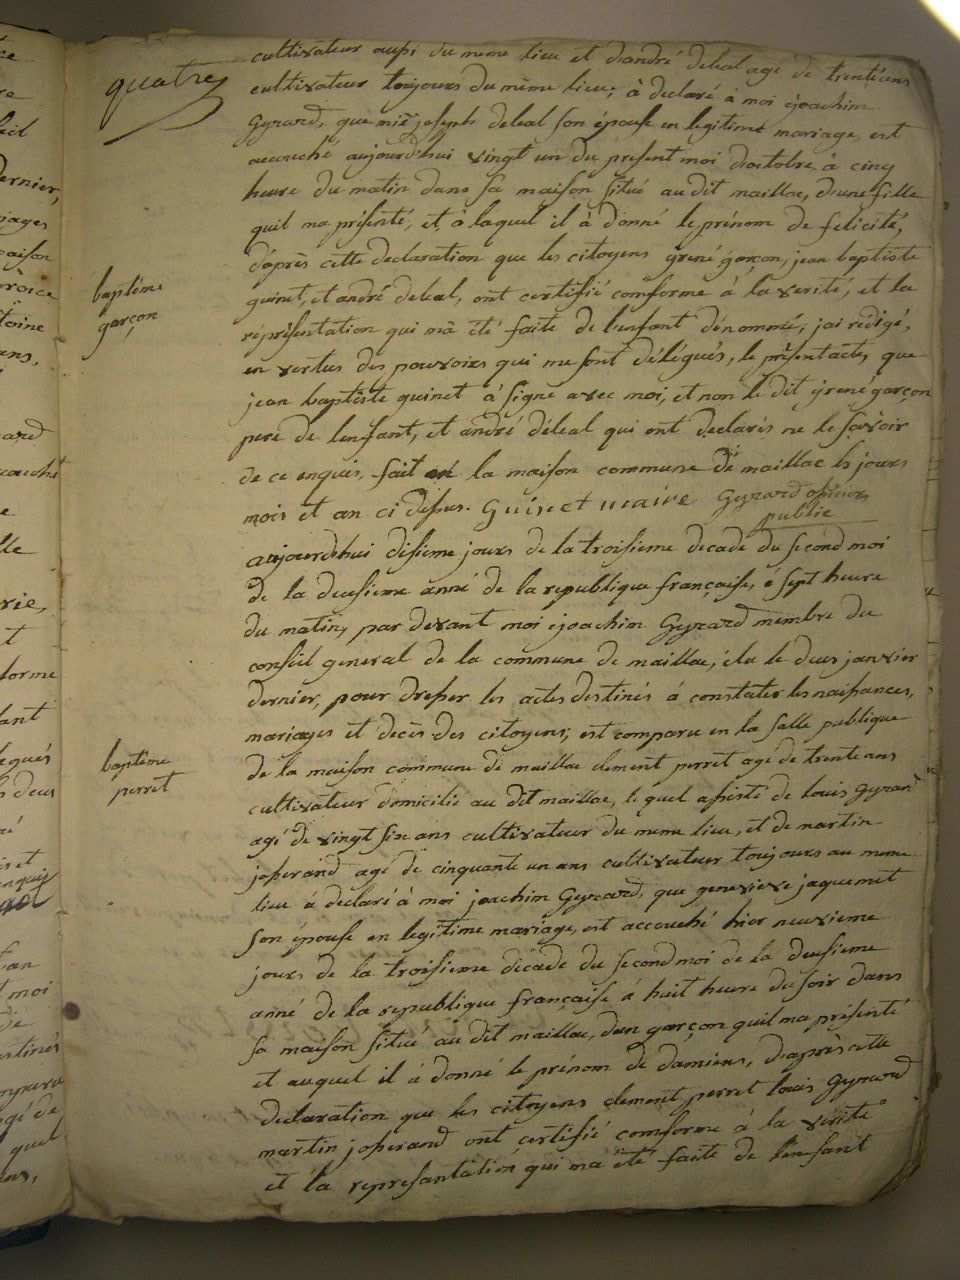 quatre
cultivateur aussi du meme lieu et d'andré deleal agé de trente ans
cultivateur toujours du même lieu; à declaré à moi joachim
Gyrard, que mie josephe deleal son épouse en legitime mariage, est
accouché aujourd'hui vingt un du present moi d'octobre à cinq
heure du matin dans sa maison situé au dit maillac, d'une fille
quil ma présenté, et à laquel il à donné le prénom de felicité,
d'après cette declaration que les citoyens grené garçon, jean baptiste
guinet, et andré deleal, ont certifié comforme à la verité, et la
représentation qui m'a été faite de l'enfant dénommé; jai redigé,
en vertus des pouvoirs qui me sont délégués, le présent acte, que
jean baptiste guinet à signé avec moi, et non le dit grené garçon
pere de lenfant, et andré déleal qui ont declarés ne le savoir
de ce enquis. fait en la maison commune de maillac les jours
mois et an ci dessus. Guinet maire Gyrard officier
publie
baptême
garçon
aujourdhui disieme jours de la troisieme decade du second moi
de la deusieme anné de la republique française, à sept heure
du matin, par devant moi joachim Gyrard membre du
conseil general de la commune de maillac, élu le deus janvier
dernier, pour dresser les actes destinés à constater les naissances,
mariages et decès des citoyens; est comparu en la salle publique
de la maison commune de maillac clement perret agé de trente ans
cultivateur domicilié au dit maillac, le quel assisté de louis Gyrard
agé de vingt six ans cultivateur du meme lieu, et de martin
josserand agé de cinquante un ans cultivateur toujours au meme
lieu à declaré à moi joachim Gyrard, que genevieve jaquemet
son épouse en legitime mariage, est accouché hier neuvieme
jours de la troisieme décade du second moi de la deusieme
anné de la republique française à huit heure du soir dans
sa maison situé au dit maillac, d'un garçon quil ma présenté
et auquel il à donné le prénom de damiens, d'après cette
declaration que les citoyens clement perret louis Gyrard
martin josserand ont certifié comforme à la verité
et la represantation qui ma été faite de l'enfant
baptême
perret